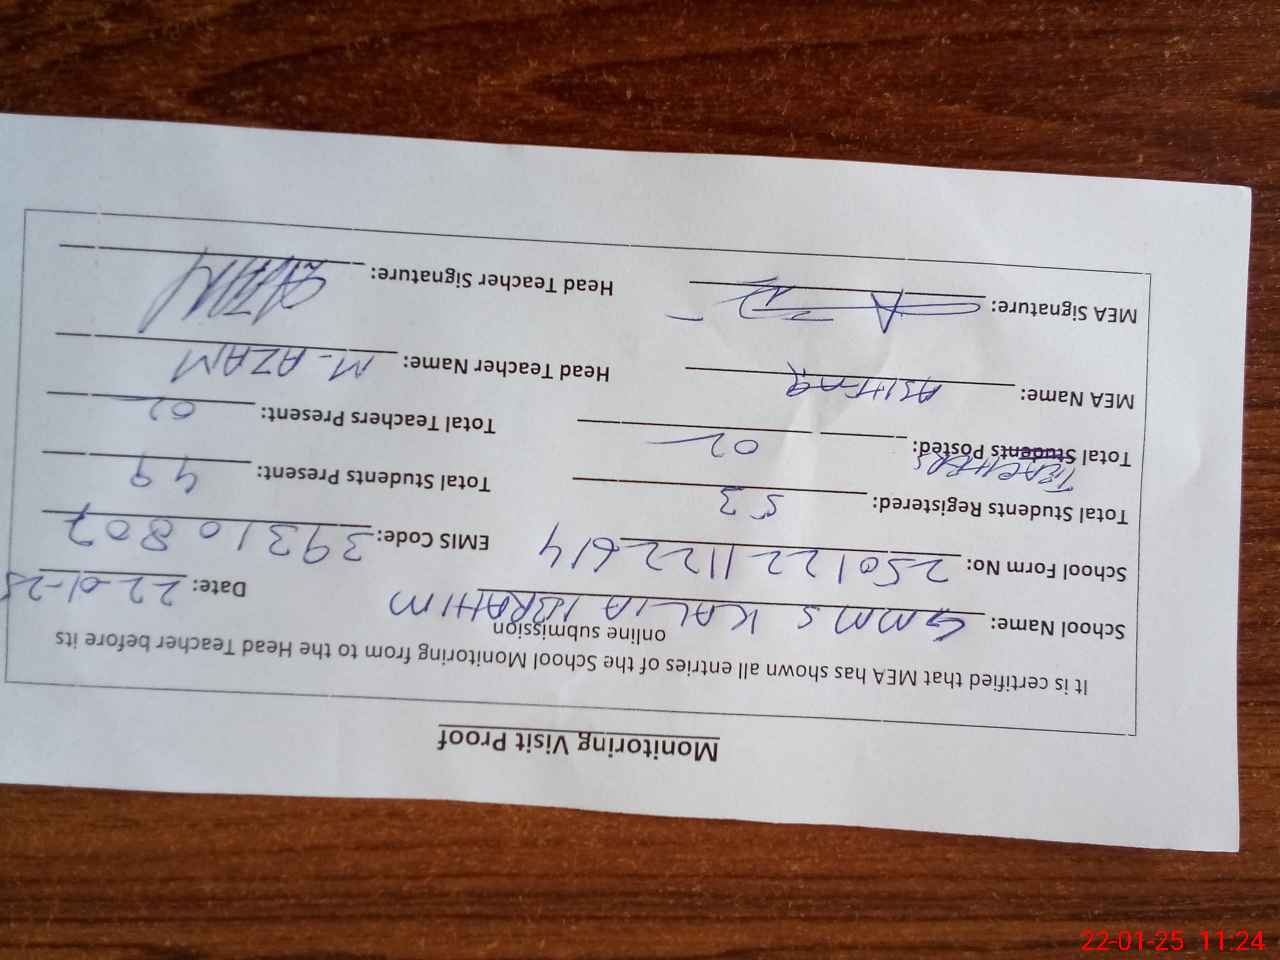 Monitoring Visit Proof
It is certified that MEA has shown all entries of the School Monitoring from to the Head Teacher before its
online submission
School Name: GMMS KALIA IBRAHIM Date: 22-01-25
School Form No: 250122112614 EMIS Code: 39310807
Total Students Registered: 53 Total Students Present: 49
TEACHERS
Total Students Posted: 02 Total Teachers Present: 02
MEA Name: ASHFAQ Head Teacher Name: M. AZAM
MEA Signature: Head Teacher Signature: AZAM
22-01-25 11:24